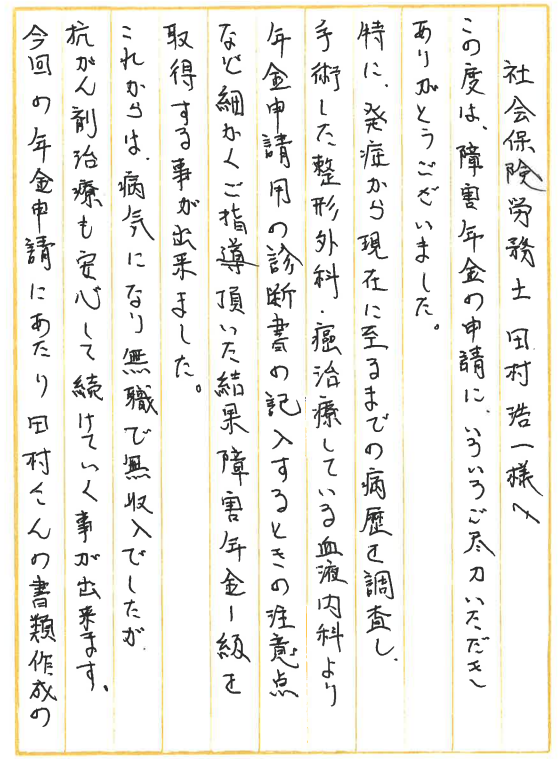 社会保険労務士 田村浩一様へ
この度は、障害年金の申請に、いろいろご尽力いただき
ありがとうございました。
特に、発症から現在に至るまでの病歴を調査し、
手術した整形外科・癌治療している血液内科より
年金申請用の診断書の記入するときの注意点
など細かくご指導頂いた結果障害年金1級を
取得する事が出来ました。
これからは、病気になり無職で無収入でしたが、
抗がん剤治療も安心して続けていく事が出来ます。
今回の年金申請にあたり田村さんの書類作成の